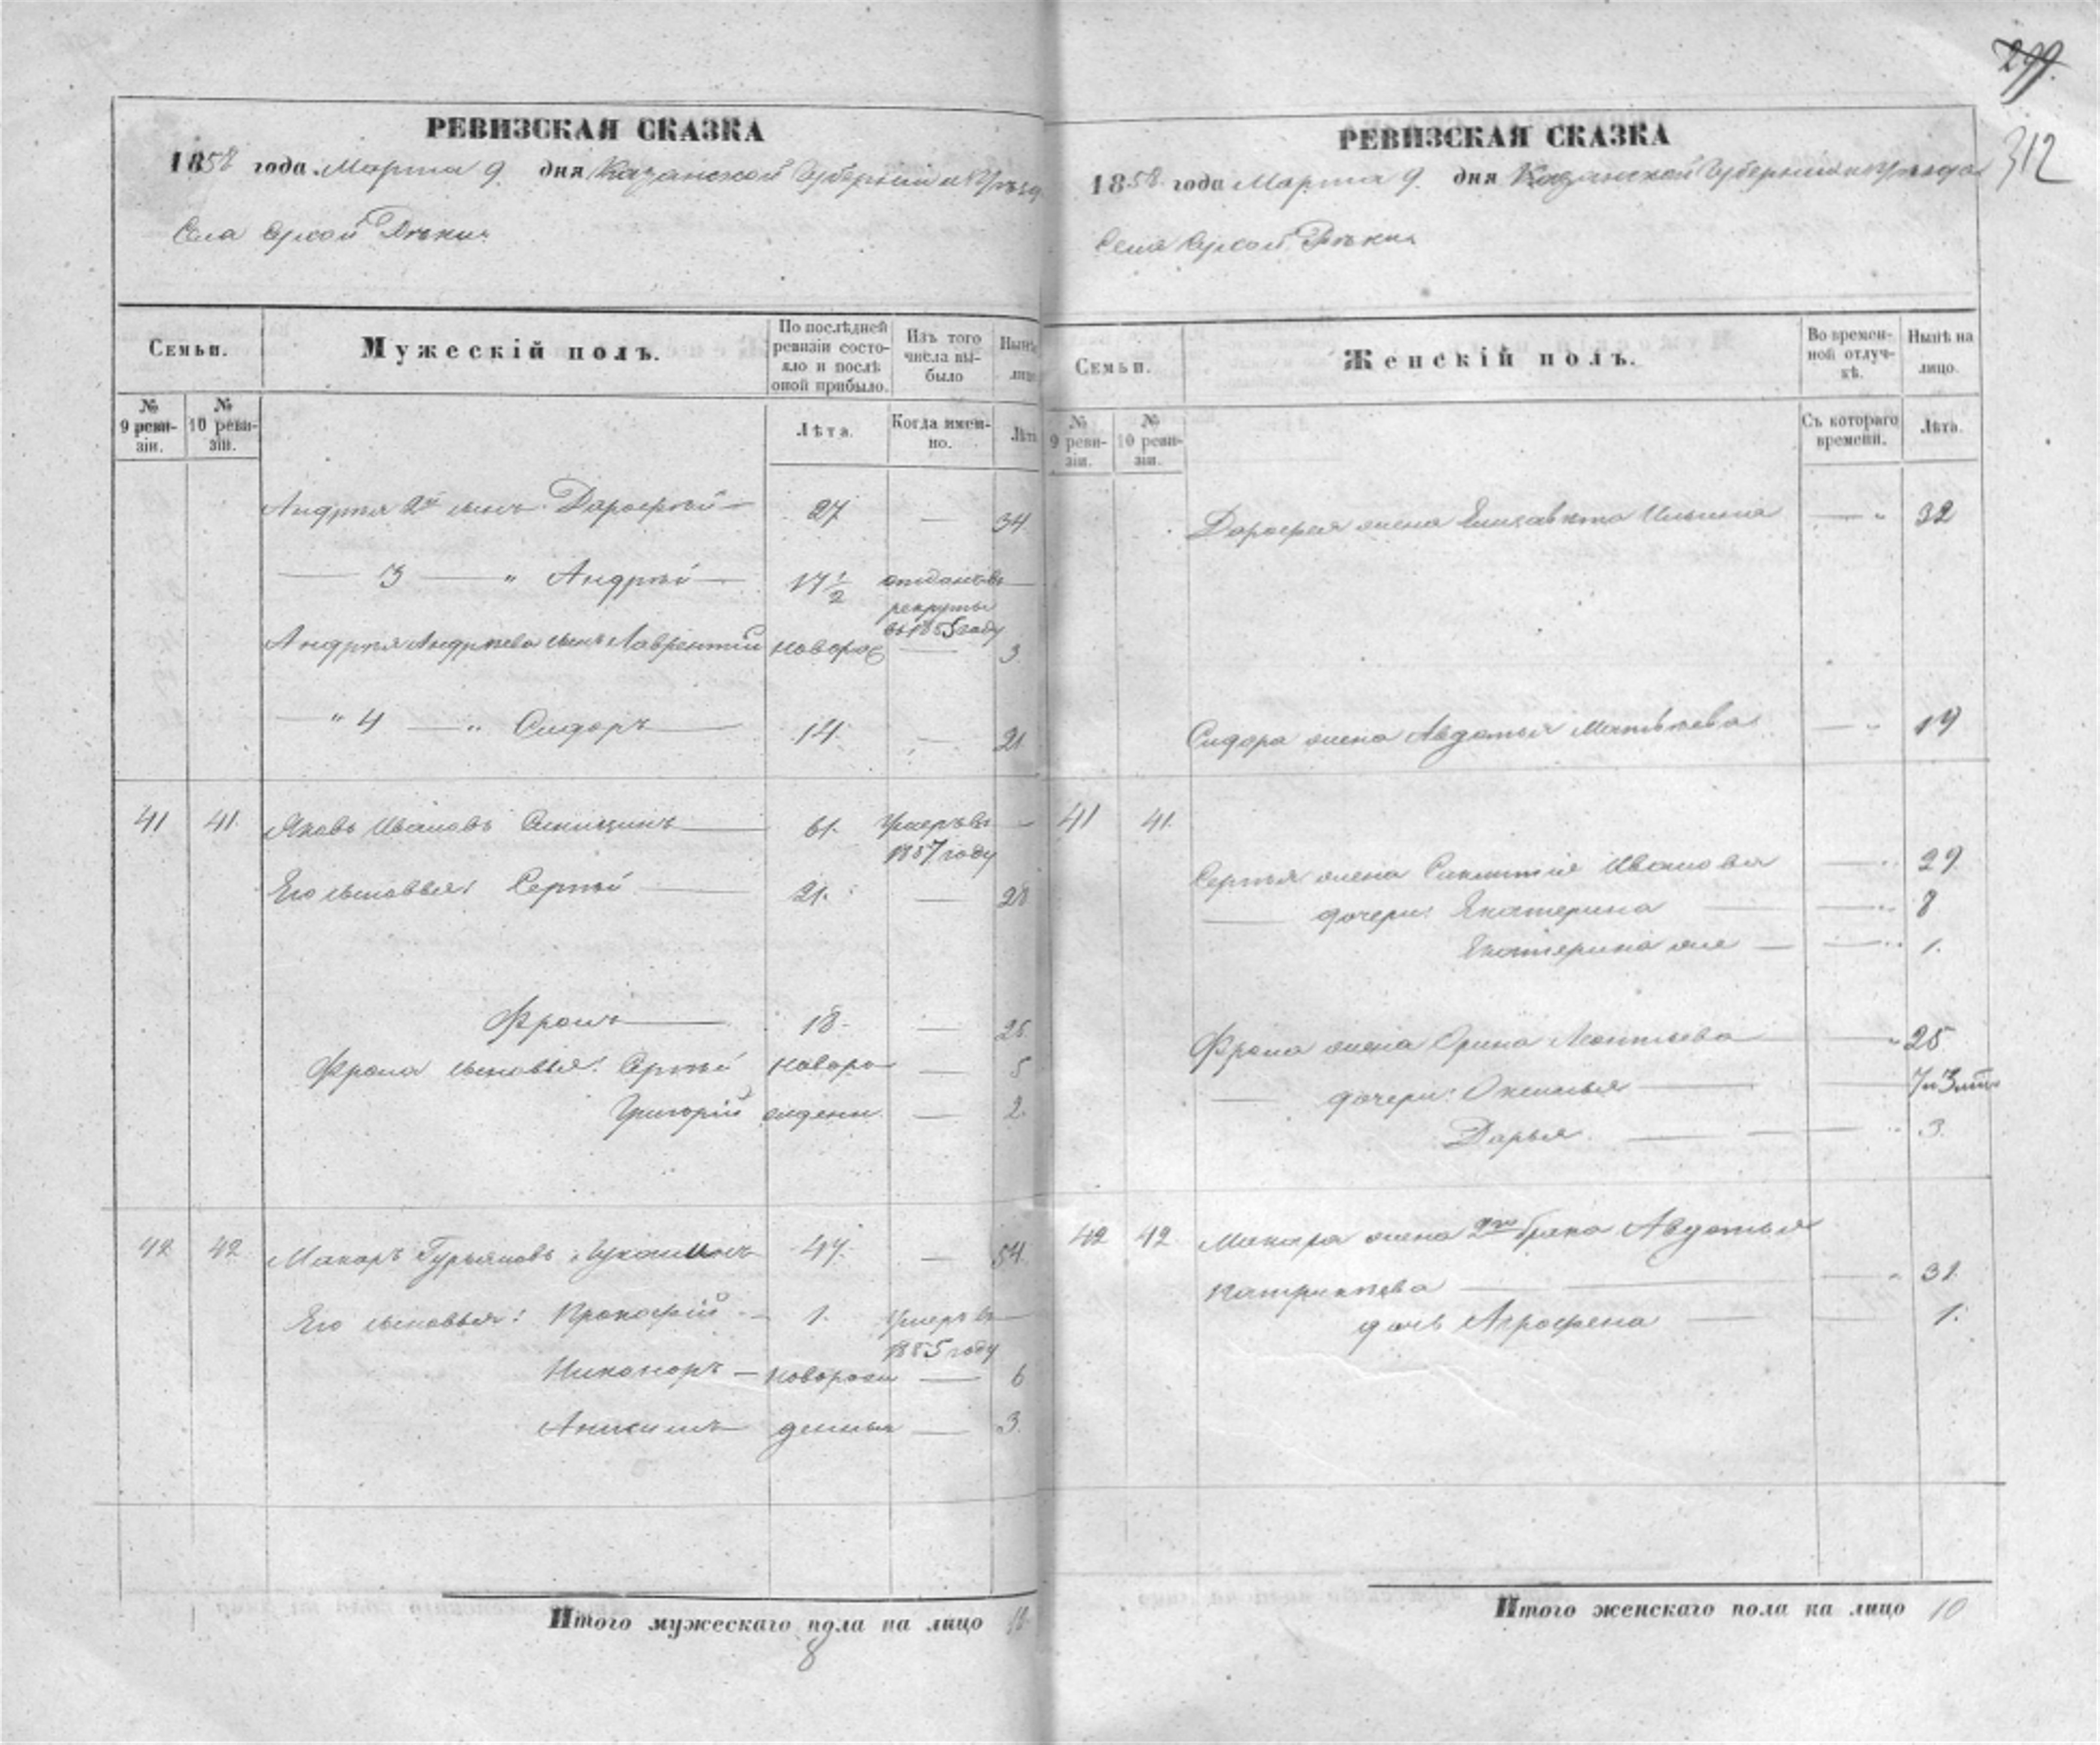 299.
312
РЕВИЗСКАЯ СКАЗКА
1858 года Марта 9 дня Казанской Губернии и Уѣзда
Села Сухой Рѣки
Семьи.
Мужескій полъ.
По послѣдней ревизіи состояло и послѣ оной прибыло.
Изъ того числа выбыло
Нынѣ лицо
№ 9 ревизіи.
№ 10 ревизіи.
Лѣта.
Когда именно.
Лѣта
Андрея 2й сынъ Дарофей 27 — 34
— 3 — " Андрей 17 1/2 отданъ въ рекруты въ 1855 году —
Андрея Андреева сынъ Лаврентій новорож — 3
— " 4 — " Сидоръ 14 — 21
41 41 Яковъ Ивановъ 61 Умеръ въ 1857 году —
Его сыновья: Сергѣй 21 — 28
Фролъ 18 — 25
Фрола сыновья: Сергѣй новоро — 5
Григорій жденн — 2
42 42 Макаръ Гурьяновъ 47 — 54
Его сыновья: Прокофій — 1 Умеръ въ 1855 году —
Никаноръ — новорож — 6
Анисимъ денныя — 3
Итого мужескаго пола на лицо
8
РЕВИЗСКАЯ СКАЗКА
1858 года Марта 9 дня Казанской Губерніи и Уѣзда
Села Сухой Рѣки
Семьи.
Женскій полъ.
Во временной отлучкѣ.
Нынѣ на лицо.
№ 9 ревизіи.
№ 10 ревизіи.
Съ котораго времени.
Лѣта.
Дарофея жена Елизавета Ильина — " 32
Сидора жена Авдотья Матвѣева — " 19
41 41
Сергѣя жена Иванова — " 29
— дочери: Екатерина — " 8
Екатерина же — " 1
Фрола жена Орина Леонтьева — " 25
— дочери: Оксинья — 7 и 3
Дарья — " 3
42 42 Макара жена 2го брака Авдотья
Патрикѣева — " 31
дочь Аграфена — 1
Итого женскаго пола на лицо 10